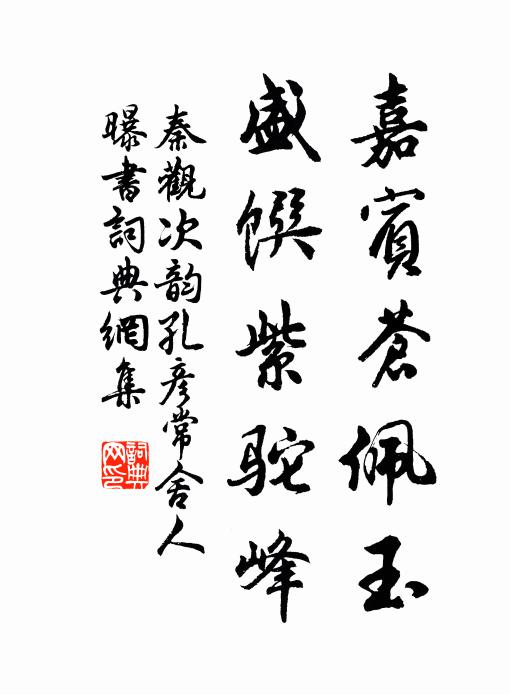 嘉賓蒼佩玉
盛馔紫駝峰
秦觀次韵孔彥常舍人
曝書詞典網集
詞典网印